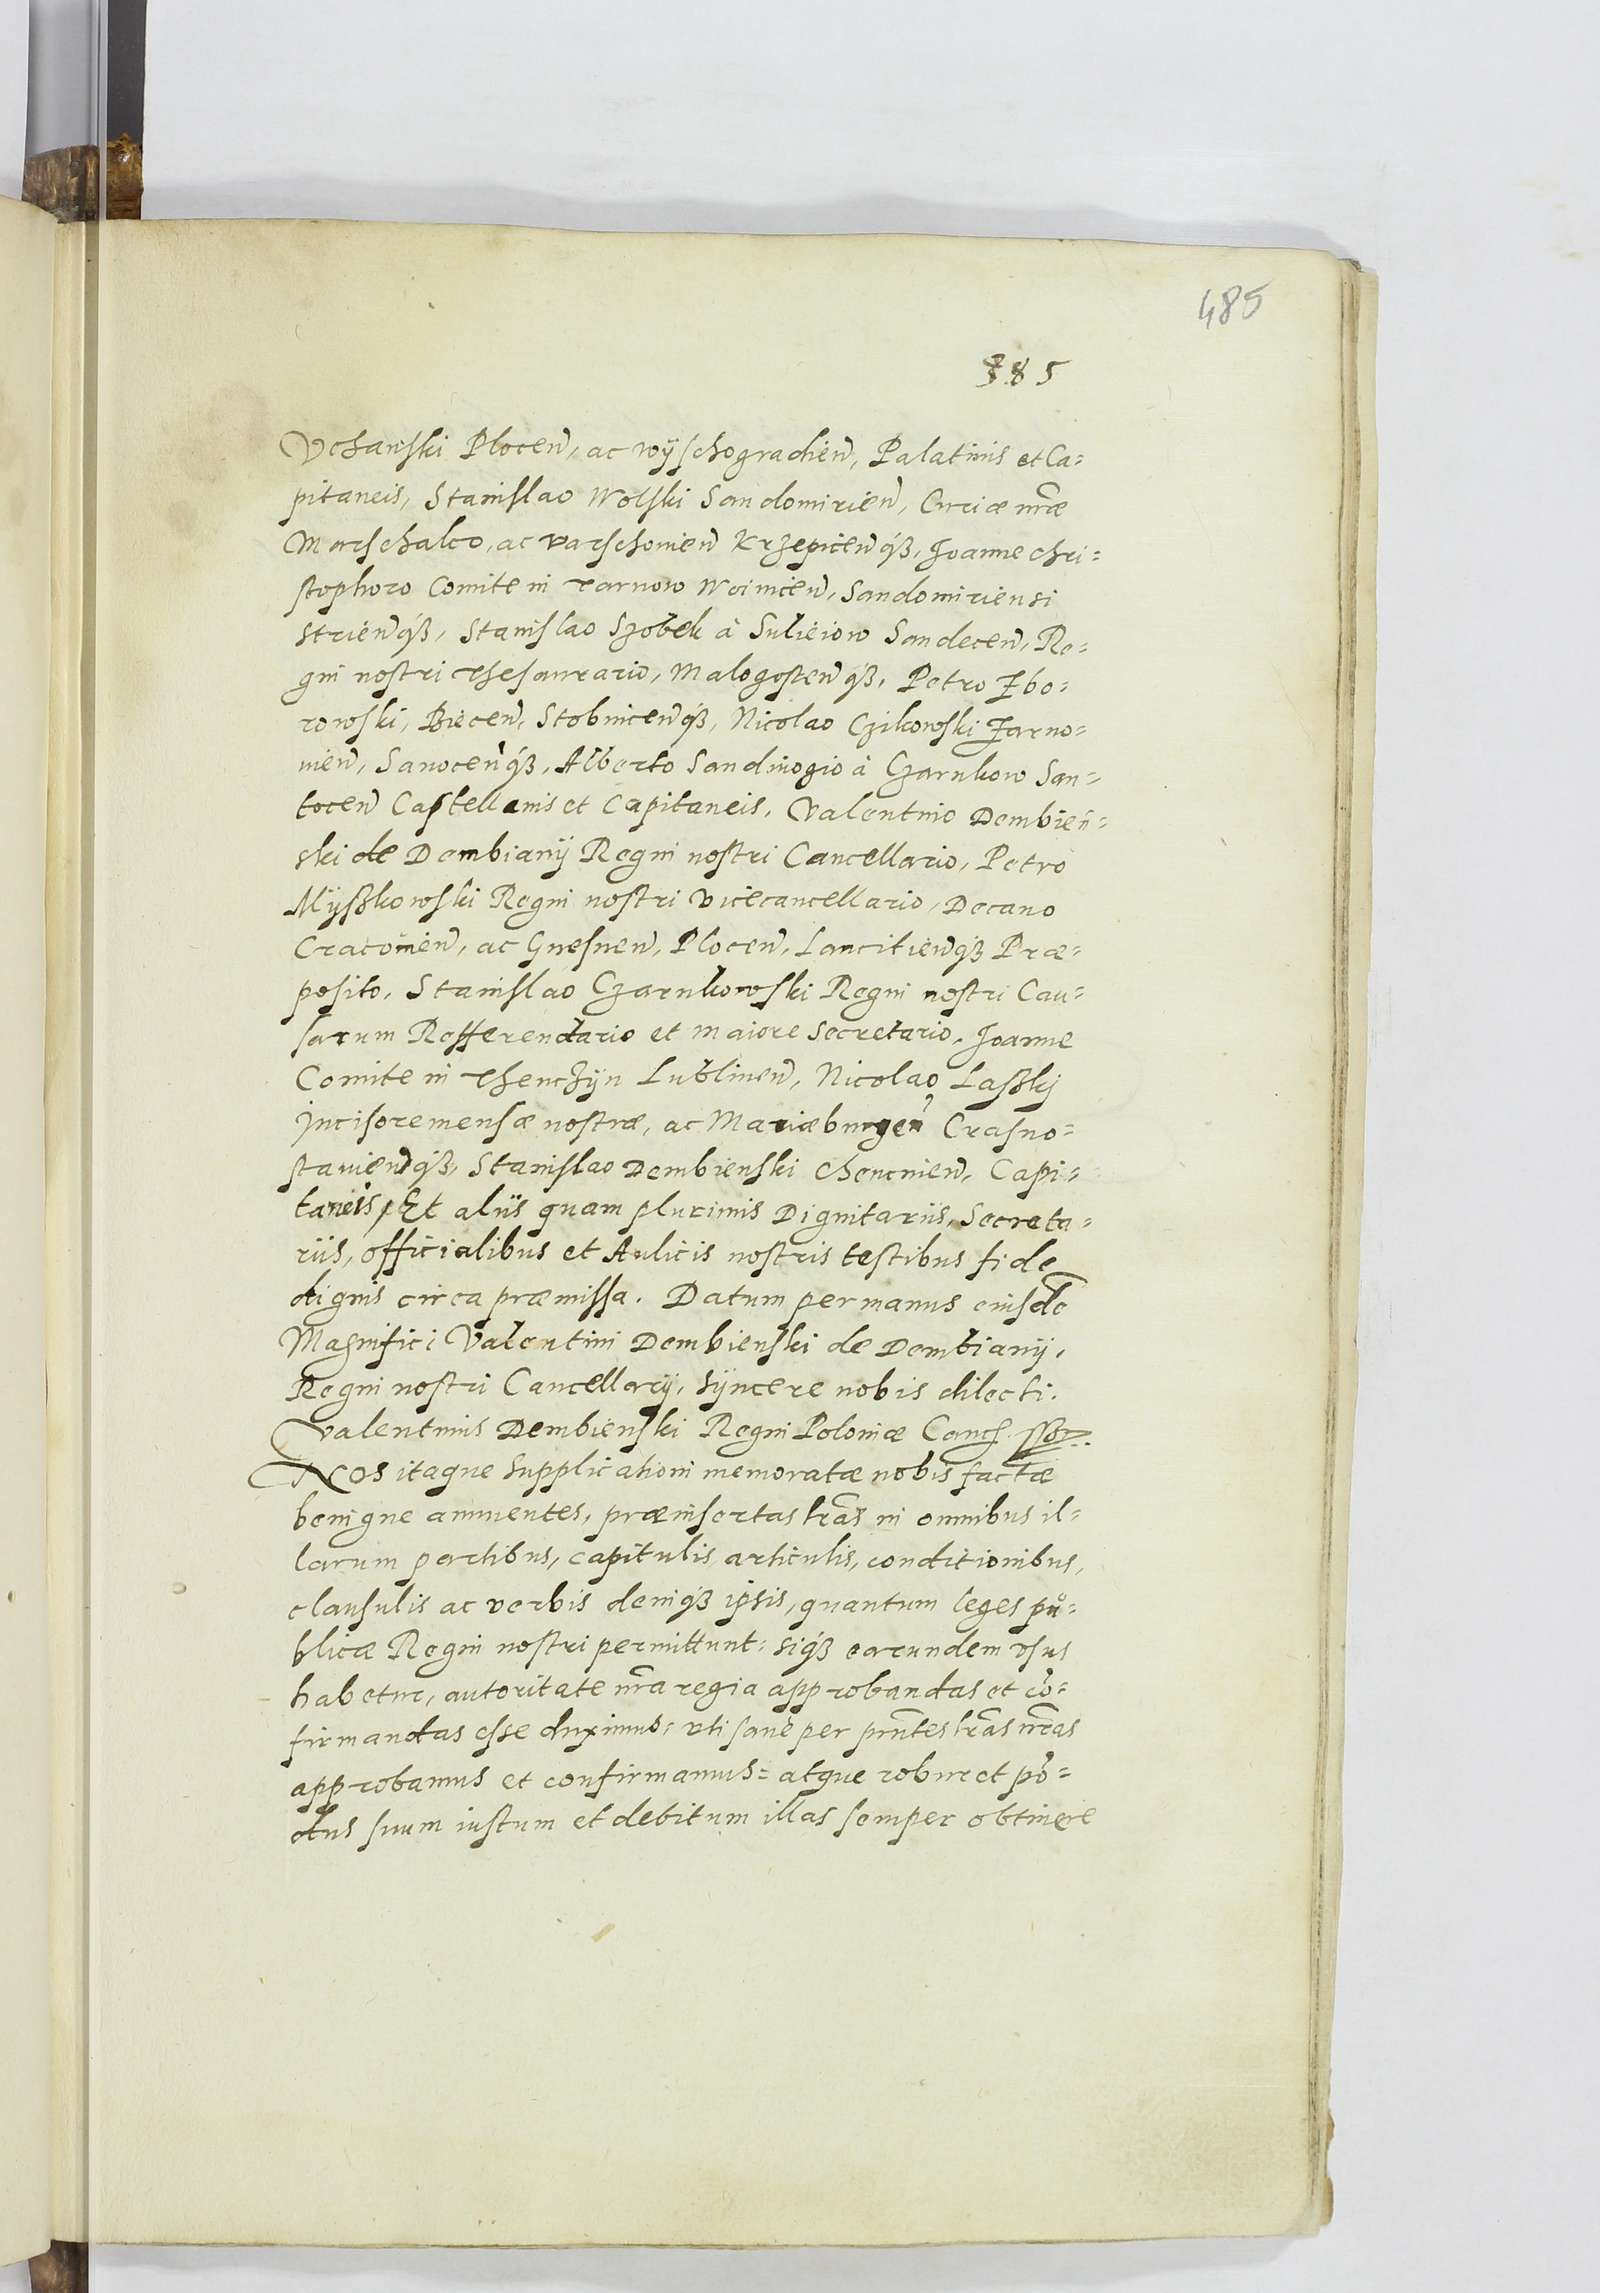 485
385
Vchanski Plocen̄, ac wÿschogradien̄, Palatinis et Ca=
pitaneis, Stanislao Wolski Sandomirien̄, Curiæ nr̄æ
Marschalco, ac varschouien̄ Krzepicen̄qꝫ, Joanne Chri=
stophoro Comite in Tarnow Woinicen̄, Sandomiriensi
Strien̄qꝫ, Stanislao Szobek à Suleiow Sandecen̄, Re=
gni nostri Thesaurario, Malogosten̄qꝫ, Petro Zbo=
rowski, Biecen̄, Stobnicen̄qꝫ, Nicolao Czikowski Zarno=
uien̄, Sanocen̄qꝫ, Alberto Sandiuogio à Czarnkow San=
tocen̄ Castellanis et Capitaneis, Valentino Dembien=
ski de Dembianÿ Regni nostri Cancellario, Petro
Mÿszkowski Regni nostri Vicecancellario, Decano
Cracouien̄, ac Gnesnen̄, Plocen̄, Lancitien̄qꝫ Præ=
posito, Stanislao Czarnkowski Regni nostri Cau=
sarum Refferendario et Maiore Secretario, Joanne
Comite in Thenczÿn Lublinen̄, Nicolao Laszkj
Incisore mensæ nostræ, ac Mariæburgen̄ Crasno=
stauien̄qꝫ, Stanislao Dembienski Chencinien̄, Capi=
taneis, Et alijs quam plurimis Dignitariis, Secreta=
riis, officialibus et Aulicis nostris testibus fide
dignis circa præmissa. Datum per manus eiusdē
Magnifici Valentini Dembienski de Dembianÿ,
Regni nostri Cancellarij, sÿncere nobis dilecti.
Valentinus Dembienski Regni Poloniæ Canc. sszt.
Nos itaque supplicationi memoratæ nobis factæ
benigne annuentes, præinsertas lr̄as in omnibus il=
larum partibus, capitulis, articulis, conditionibus,
clausulis ac verbis deniqꝫ ipsis, quantum leges pu=
blicæ Regni nostri permittunt: siqꝫ earundem vsus
habetur, autoritate nr̄a regia approbandas et cō=
firmandas esse duximus: vti sane per pr̄ntes lr̄as nr̄as
approbamus et confirmamus: atque robur et pō=
dus suum iustum et debitum illas semper obtinere